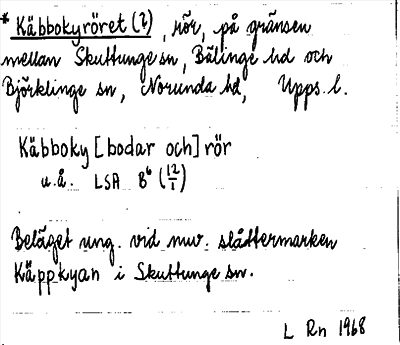 * Käbbokyröret (?), rör, på gränsen
mellan Skuttunge sn, Bälinge hd och
Björklinge sn, Norunda hd, Upps. l.
Käbboky [bodar och] rör
u.å. LSA B⁶ (12/1)
Beläget ung. vid nuv. slåttermarken
Käppkyan i Skuttunge sn.
L Rn 1968